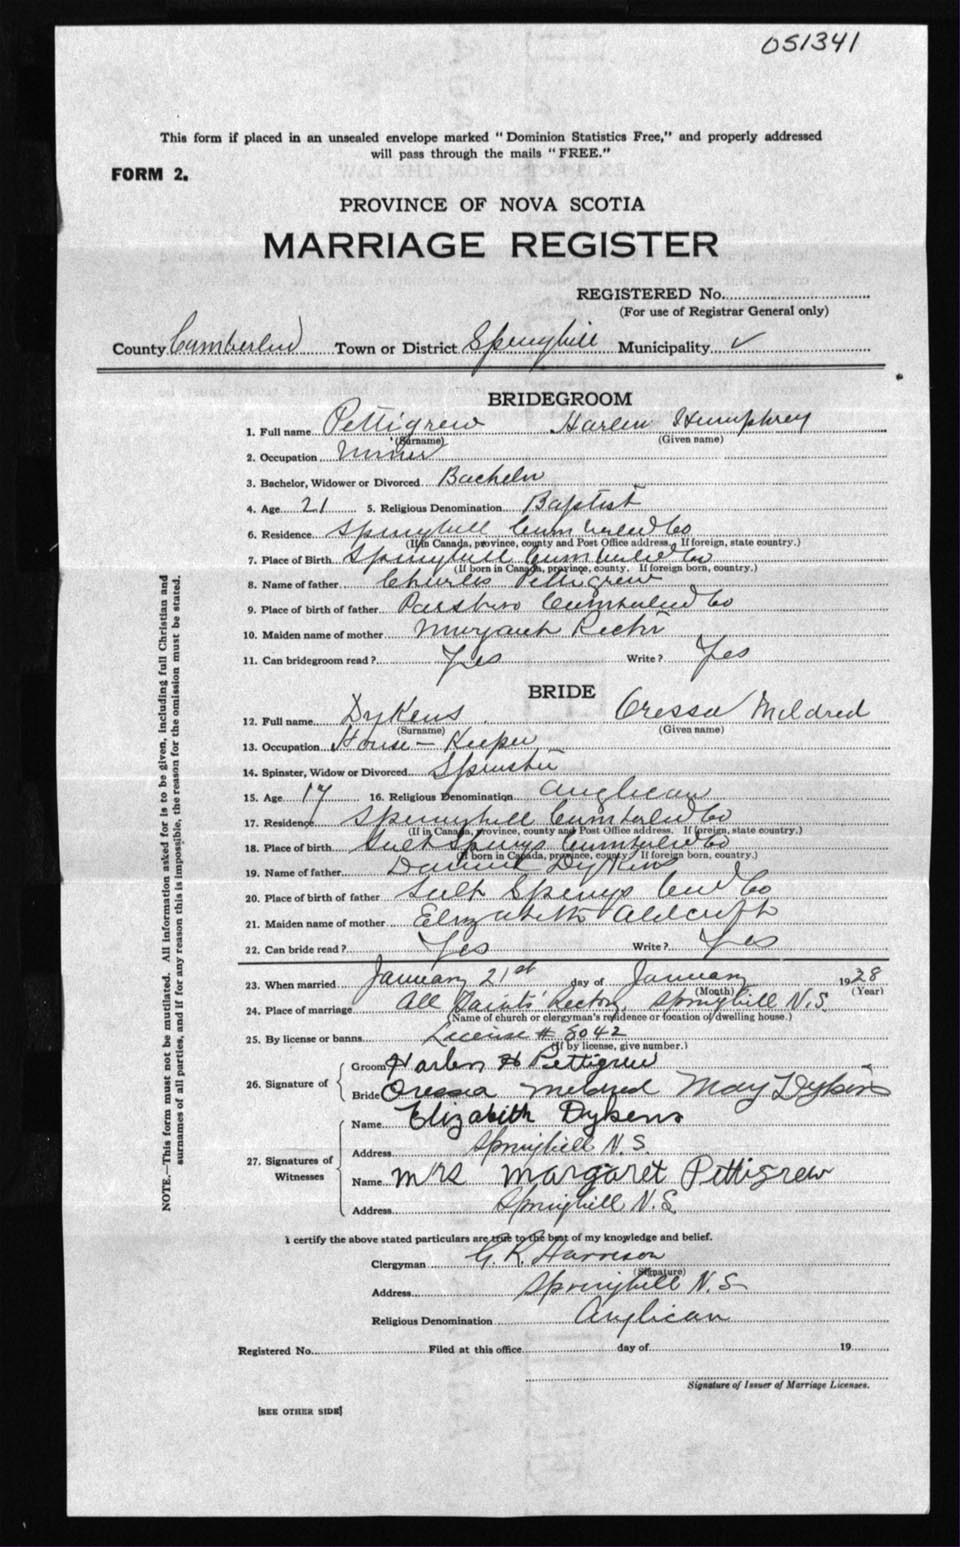 051341
This form if placed in an unsealed envelope marked "Dominion Statistics Free," and properly addressed
will pass through the mails "FREE."
FORM 2.
PROVINCE OF NOVA SCOTIA
MARRIAGE REGISTER
REGISTERED No.
(For use of Registrar General only)
County Cumberland Town or District Springhill Municipality ✓
BRIDEGROOM
1. Full name Pettigrew Harlen Humphrey
(Surname) (Given name)
2. Occupation Miner
3. Bachelor, Widower or Divorced Bachelor
4. Age 21 5. Religious Denomination Baptist
6. Residence Springhill Cumberland Co
(If in Canada, province, county and Post Office address. If foreign, state country.)
7. Place of Birth Springhill Cumberland Co
(If born in Canada, province, county. If foreign born, country.)
8. Name of father Charles Pettigrew
9. Place of birth of father Parrsboro Cumberland Co
10. Maiden name of mother Margaret Rector
11. Can bridegroom read? Yes Write? Yes
BRIDE
12. Full name Dykens Oressa Mildred
(Surname) (Given name)
13. Occupation House-Keeper
14. Spinster, Widow or Divorced Spinster
15. Age 17 16. Religious Denomination Anglican
17. Residence Springhill Cumberland Co
(If in Canada, province, county and Post Office address. If foreign, state country.)
18. Place of birth Salt Springs Cumberland Co
(If born in Canada, province, county. If foreign born, country.)
19. Name of father Dykens
20. Place of birth of father Salt Springs Cum Co
21. Maiden name of mother Elizabeth Aldcroft
22. Can bride read? Yes Write? Yes
23. When married January 21st day of January 1928
(Month) (Year)
24. Place of marriage All Saints' Rectory Springhill N.S.
(Name of church or clergyman's residence or location of dwelling house.)
25. By license or banns License # 8042
(If by license, give number.)
26. Signature of
Groom Harlen H Pettigrew
Bride Oressa Mildred May Dykens
27. Signatures of Witnesses
Name Elizabeth Dykens
Address Springhill N.S.
Name Mrs Margaret Pettigrew
Address Springhill N.S.
I certify the above stated particulars are true to the best of my knowledge and belief.
Clergyman G. R. Harrison
(Signature)
Address Springhill N.S
Religious Denomination Anglican
Registered No. Filed at this office day of 19
Signature of Issuer of Marriage Licenses.
[SEE OTHER SIDE]
NOTE.—This form must not be mutilated. All information asked for is to be given, including full Christian and
surnames of all parties, and if for any reason this is impossible, the reason for the omission must be stated.